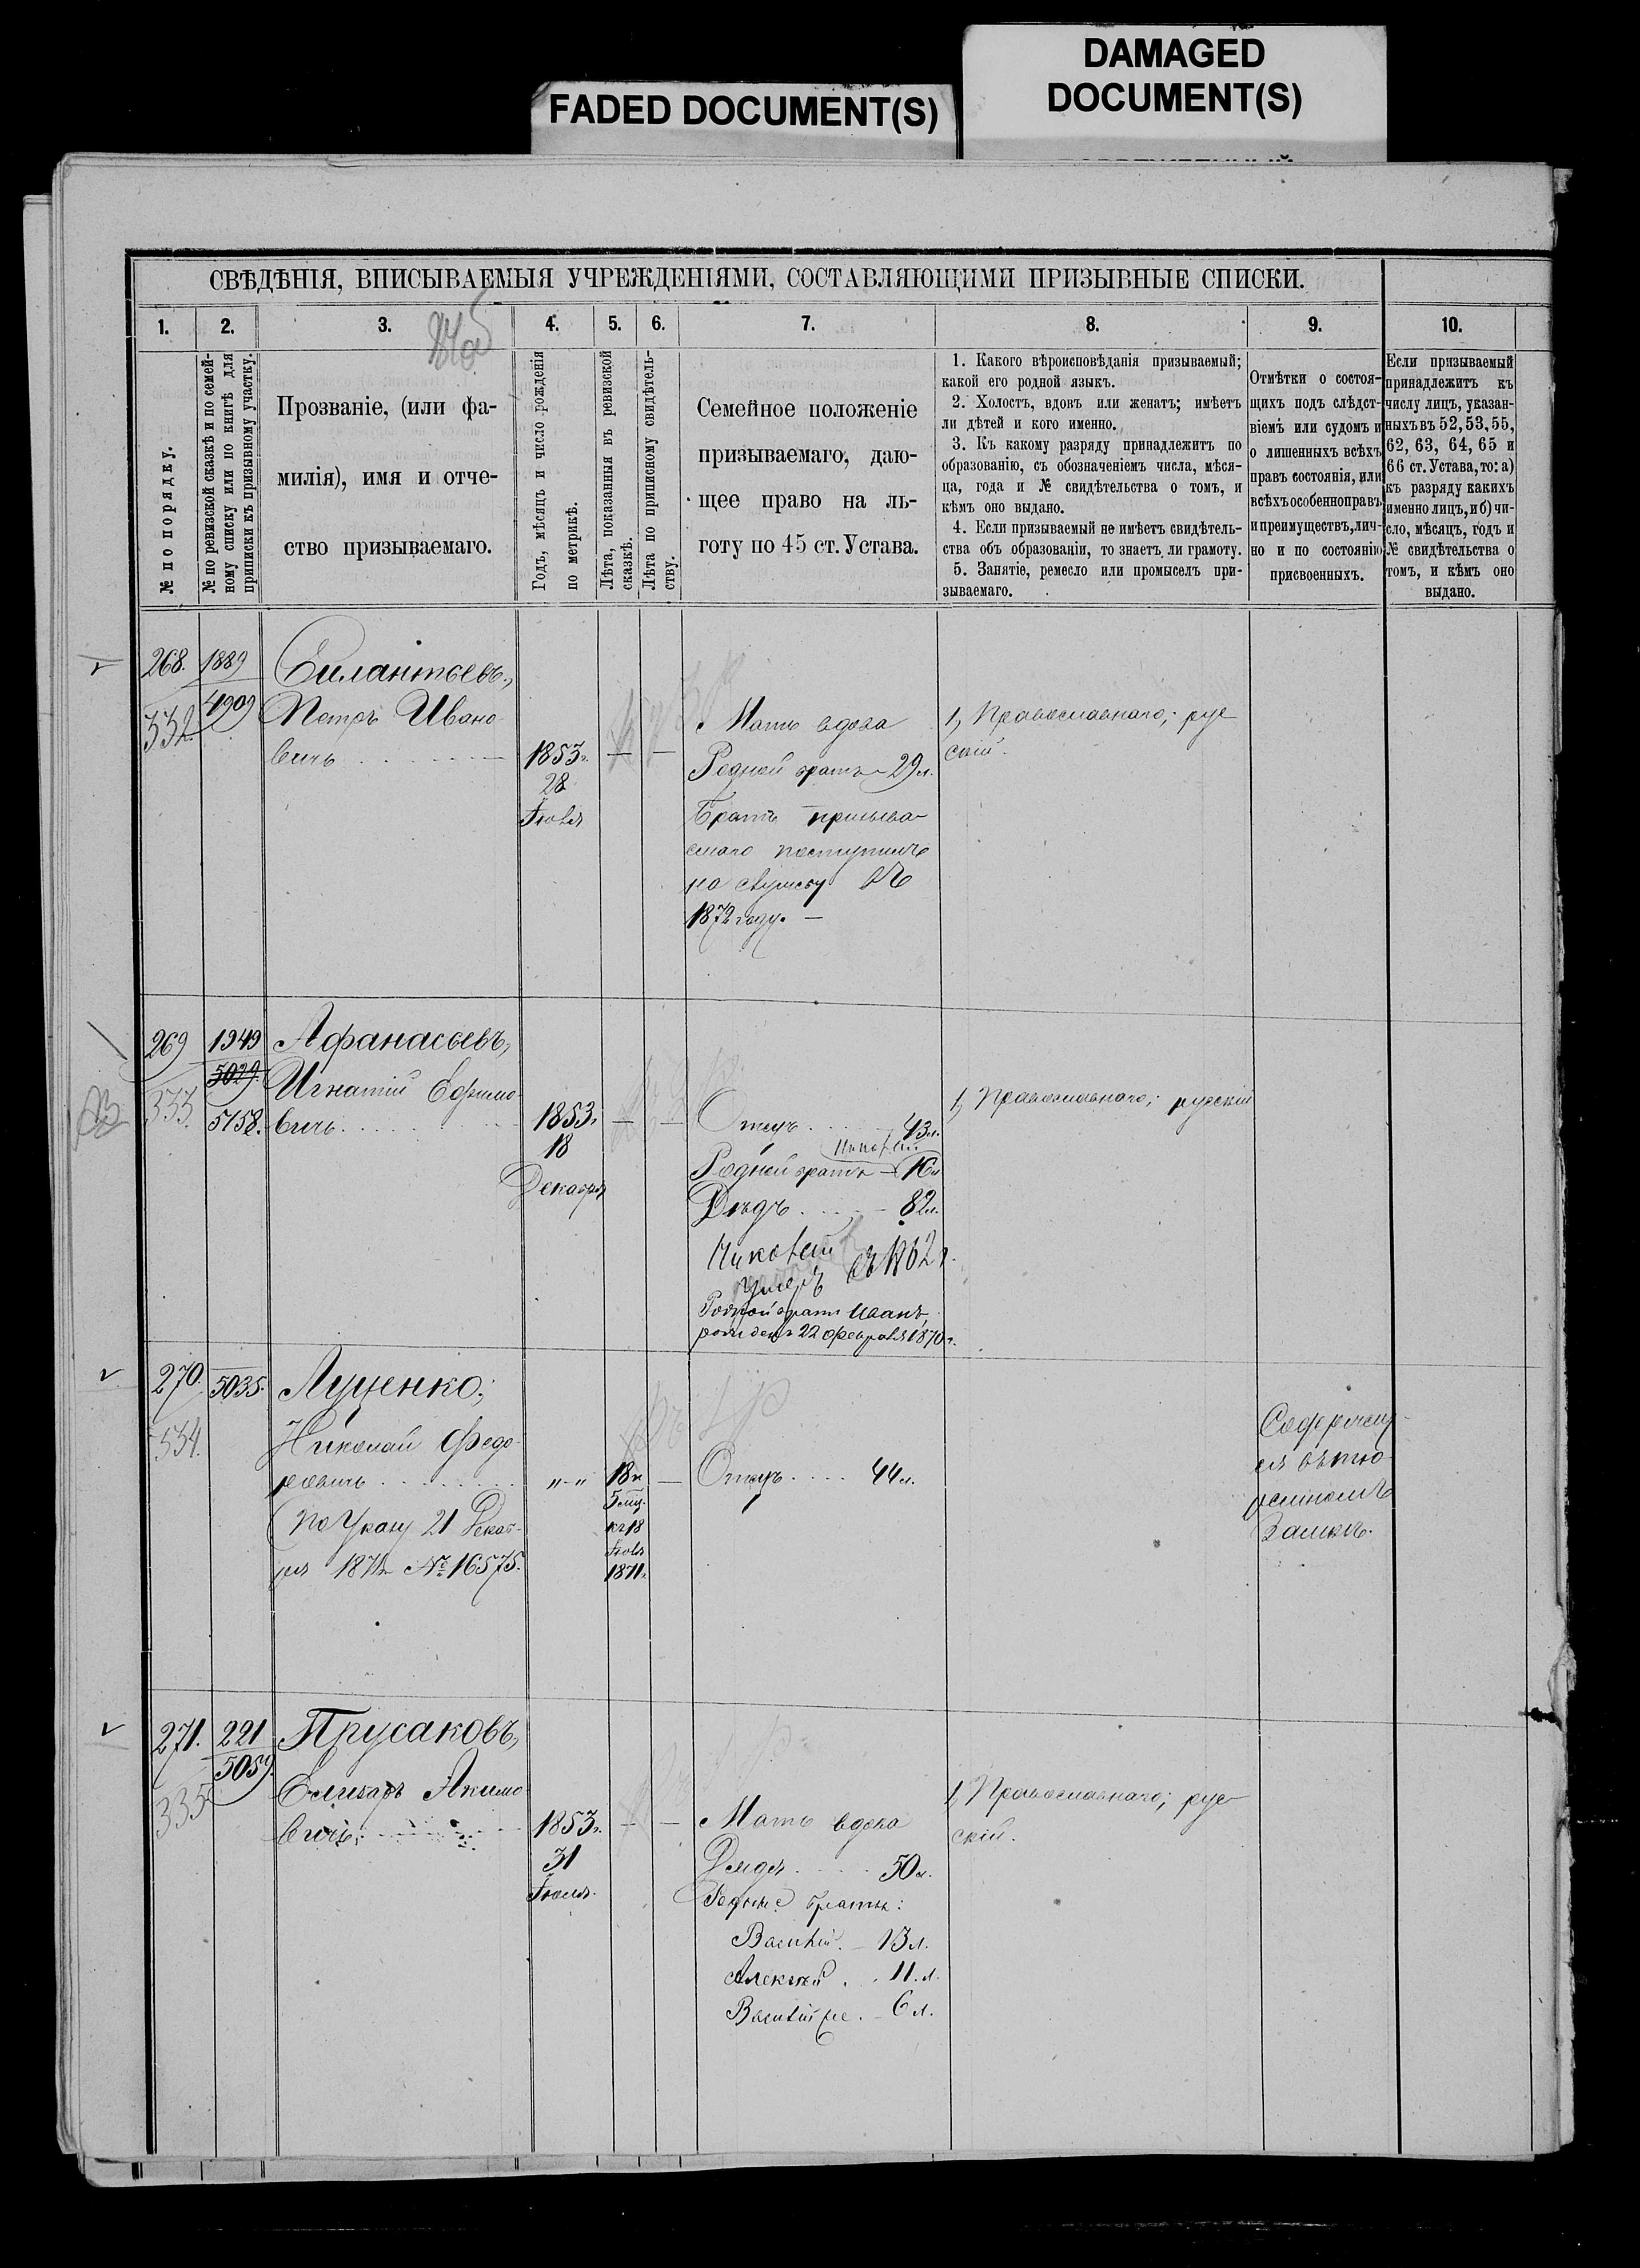 FADED DOCUMENT(S)
DAMAGED
DOCUMENT(S)
СВѢДѢНІЯ, ВПИСЫВАЕМЫЯ УЧРЕЖДЕНІЯМИ, СОСТАВЛЯЮЩИМИ ПРИЗЫВНЫЕ СПИСКИ.
1.
2.
3.
4.
5.
6.
7.
8.
9.
10.
№ по порядку.
№ по ревизской сказкѣ и по семей-
ному списку или по книгѣ для
приписки къ призывному участку.
Прозваніе, (или фа-
милія), имя и отче-
ство призываемаго.
Годъ, мѣсяцъ и число рожденія
по метрикѣ.
Лѣта, показанныя въ ревизской
сказкѣ.
Лѣта по приписному свидѣтель-
ству.
Семейное положеніе
призываемаго, даю-
щее право на ль-
готу по 45 ст. Устава.
1. Какого вѣроисповѣданія призываемый;
какой его родной языкъ.
2. Холостъ, вдовъ или женатъ; имѣетъ
ли дѣтей и кого именно.
3. Къ какому разряду принадлежитъ по
образованію, съ обозначеніемъ числа, мѣся-
ца, года и № свидѣтельства о томъ, и
кѣмъ оно выдано.
4. Если призываемый не имѣетъ свидѣтель-
ства объ образованіи, то знаетъ ли грамоту.
5. Занятіе, ремесло или промыселъ при-
зываемаго.
Отмѣтки о состоя-
щихъ подъ слѣдст-
віемъ или судомъ и
о лишенныхъ всѣхъ
правъ состоянія, или
всѣхъ особенно правъ
и преимуществъ, лич-
но и по состоянію
присвоенныхъ.
Если призываемый
принадлежитъ къ
числу лицъ, указан-
ныхъ въ 52, 53, 55,
62, 63, 64, 65 и
66 ст. Устава, то: а)
къ разряду какихъ
именно лицъ, и б) чи-
сло, мѣсяцъ, годъ и
№ свидѣтельства о
томъ, и кѣмъ оно
выдано.
268.
332.
1889
4909
Силантьевъ,
Петръ Ивано
вичъ
1853 г.
28
Іюля
—
—
Мать вдова
Родной братъ - 29 л.
Братъ призыва-
емаго поступилъ
на службу въ
1872 году. —
1, Православнаго; рус
скій.
269
333.
1949
5029.
5158.
Афанасьевъ,
Игнатій Ефимо
вичъ
1853 г.
18
Декабря
—
—
Отецъ 43 л.
Николай
Родной братъ — 16 л
Дѣдъ 82 л.
Николай
умеръ въ 1862 г.
Родной братъ Иванъ,
рожденъ 22 февраля 1870 г.
1, Православнаго; русскій
270.
334.
5035.
Луценко,
Николай Федо
ровичъ
(По Указу 21 Декаб-
ря 1871 г. № 16575.
„ - „
18 л
5 мц.
къ 18
Іюля
1871 г.
—
Отецъ 44 л.
Содержит
ся въ тю
ремномъ
Замкѣ.
271.
335.
221
5059.
Прусаковъ,
Елизаръ Акимо
вичъ
1853 г.
31
Іюля.
—
—
Мать вдова
Дядя 50 л.
Родные братья:
Василій. — 13 л.
Алексѣй . . 11. л.
Василій же. — 6 л.
1, Православнаго; рус-
скій.